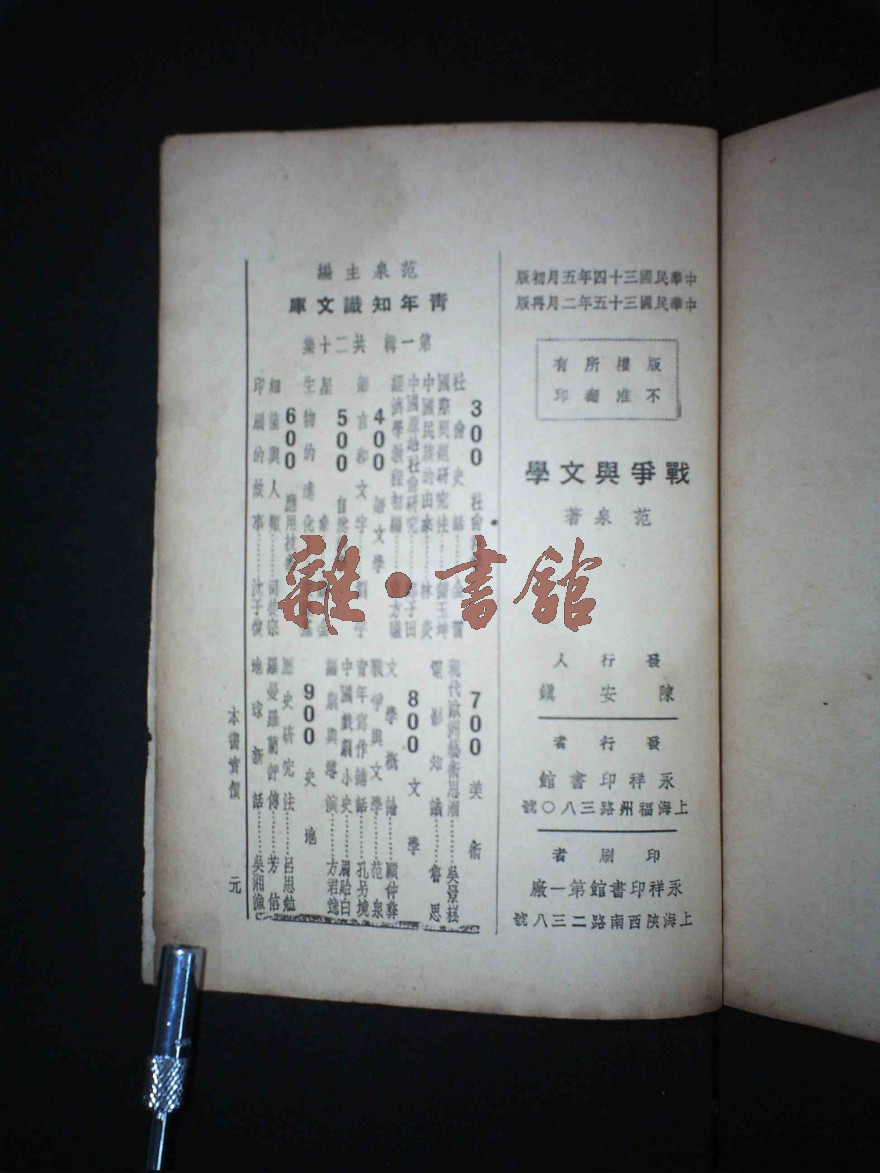 中華民國三十四年五月初版
中華民國三十五年二月再版
版權所有
不准翻印
戰爭與文學
范泉著
發行人
陳安鎭
發行者
永祥印書館
上海福州路三八〇號
印刷者
永祥印書館第一廠
上海陝西南路二三八號
范泉主編
靑年知識文庫
第一輯 共二十集
300 社會
社會史話
國際問題研究法
中國民族的由來……林炎
中國原始社會研究
經濟學敎程初編
400 語文學
語言和文字
500 自然
星象
生物的進化
600 應用技
細菌與人類
印刷的故事……沈子復
700 美術
現代歐洲藝術思潮……吳景崧
電影知識……魯思
800 文學
文學槪論……顧仲彝
戰爭與文學……范泉
靑年寫作講話……孔另境
中國戲劇小史……周貽白
編劇與導演……方君逸
900 史地
歷史研究法……呂思勉
羅曼羅蘭評傳……芳信
地球新話……吳湘漁
本書實價 元
雜·書館